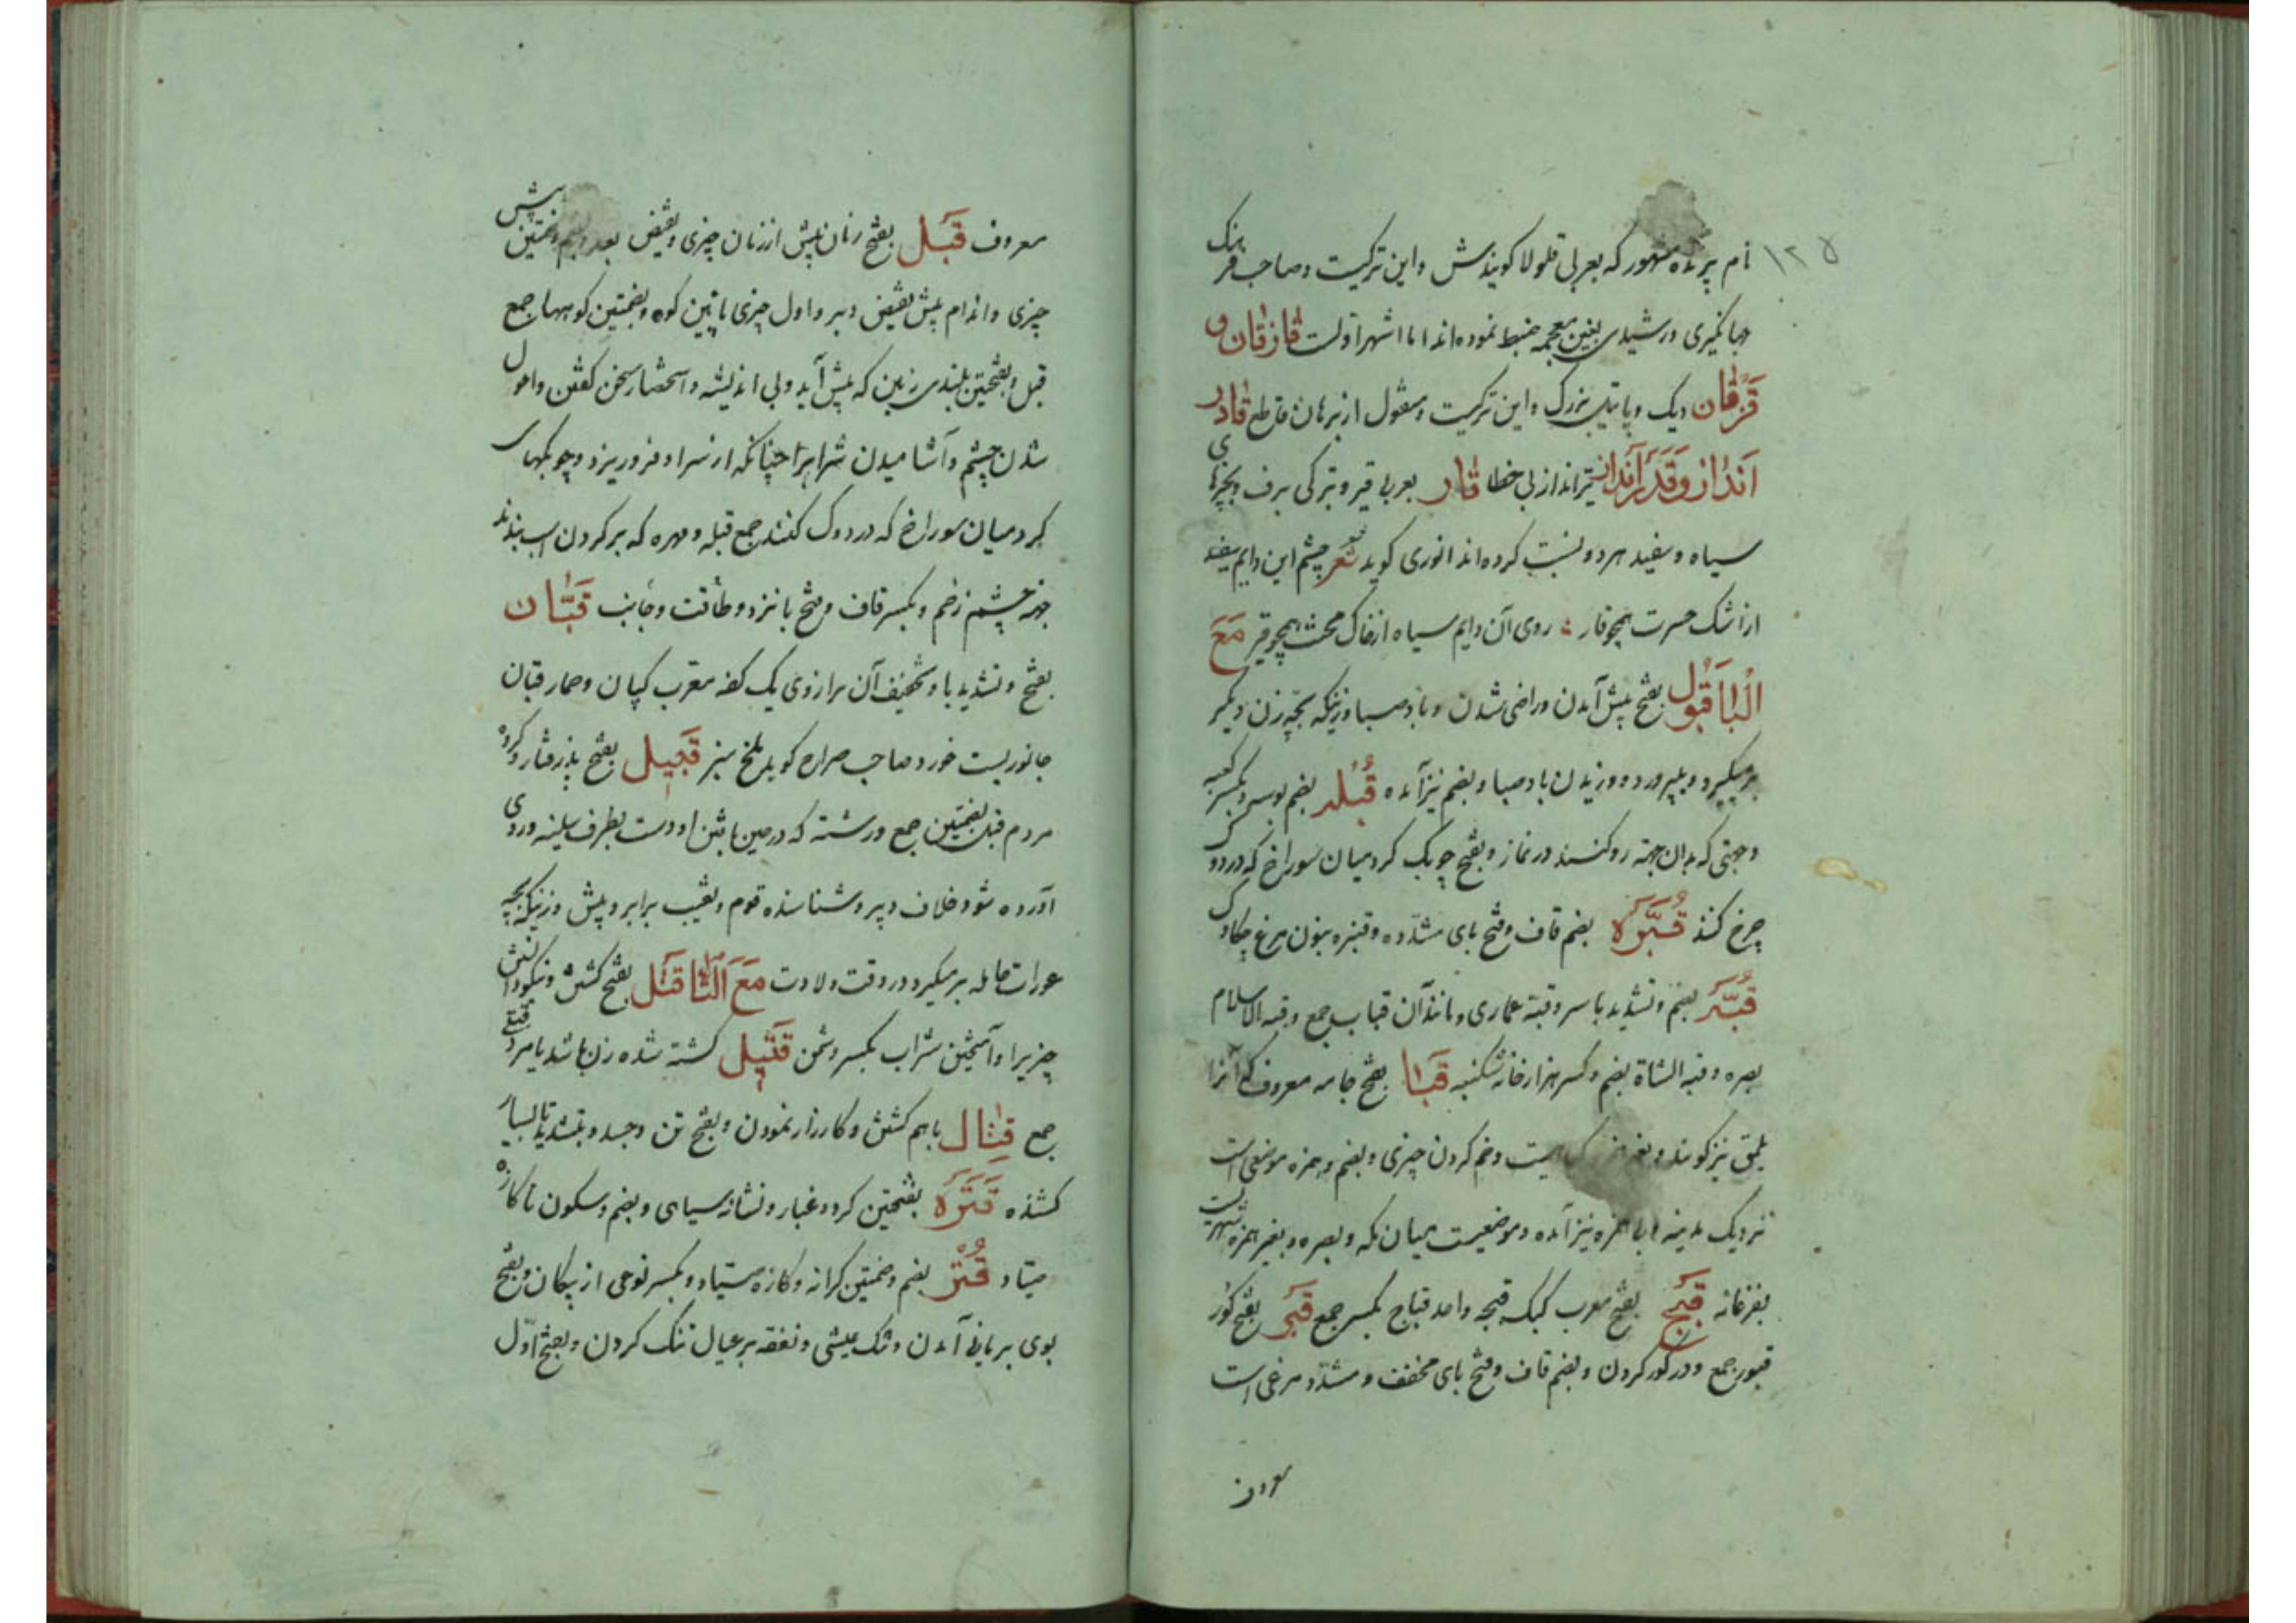 ۱۲۵
نام پرنده مشهور که بعربی قلولا کویندش و این ترکیست و صاحب فرهنک
جهانکیری و رشیدی بغین معجمه ضبط نموده اند اما اشهر اولست قازقان و
قزقان دیک و پاتیل بزرک و این ترکیست و منقول از برهان قاطع قادر
انداز و قدر انداز تیرانداز بی خطا قار بعربی قیر و ترکی برف و بچیزهای
سیاه و سفید هر دو نسبت کرده اند انوری کوید شعر چشم این دایم سفید
از اشک حسرت همچو قار روی آن دایم سیاه از خاک محنت همچو قیر مع
البا قبول بفتح پیش آمدن و راضی شدن و باد صبا و زنیکه بچه زن دیکر
برمیکیرد و میپرورد و وزیدن باد صبا و بضم نیز آمده قبله بضم بوسه و بکسر کعبه
و جهتی که بدان جهة رو کنند در نماز و بفتح چوبک کرد میان سوراخ که در دوک
چرخ کنند قبره بضم قاف و فتح بای مشدده و قنبره بنون مرغ چکاوک
قبه بضم و تشدید با سر و قبه عماری و مانند آن قباب جمع و قبه الاسلام
بصره و قبه الشاة بضم و کسر هزارخانه شکنبه قبا بفتح جامه معروف که آنرا
یلمق نیز کویند و بغیر و خم کردن چیزی و بضم و همزه موضعی است
نزدیک مدینه و بی همزه نیز آمده و موضعیست میان مکه و بصره و بغیر همزه شهریست
بفرغانه قبج بفتح معرب کبک قبجه واحد قباج بکسر جمع قبر بفتح کور
قبور جمع و در کور کردن و بضم قاف و فتح بای مخفف و مشدد مرغی است
معروف
معروف قبل بفتح زمان پیش از زمان چیزی و نقیض بعد و بضم و ضمتین پیش
چیزی و اندام پیش نقیض دبر و اول چیزی پائین کوه و بضمتین کوهها جمع
قبل و بفتحتین بلندی زمین که پیش آید و بی اندیشه و استحضار سخن کفتن و احول
شدن چشم و آشامیدن شتر ابرا چنانکه از سر او فرو ریزد و چوبکهای
کرد میان سوراخ که در دوک کنند جمع قبله و مهره که بر کردن اسب بندند
جهة چشم زخم و بکسر قاف و فتح با نزد و طاقت و جانب قبان
بفتح و تشدید با و تخفیف آن ترازوی یک کفه معرب کپان و حمار قبان
جانوریست خورد و صاحب صراح کوید ملخ سبز قبیل بفتح پذرفتار و کروه
مردم قبل بضمتین جمع و رشته که در حین تافتن او دست بطرف سینه و روی
آورده شود خلاف دبیر و شناسنده قوم و نقیب برابر و پیش و زنیکه بچه
عورات حامله برمیکیرد در وقت ولادت مع التا قتل بفتح کشتن و نیکو دانستن
چیزیرا و آمیختن شراب بکسر دشمن قتیل کشته شده زن باشد یا مرد قتلی
جمع قتال باهم کشش و کارزار نمودن و بفتح تن و جسد و بتشدید تا بسیار
کشنده قتره بفتحتین کرد و غبار و نشانه سیاهی و بضم و سکون تا کازه
صیاد قتر بضم و ضمتین کرانه و کازه صیاد و بکسر نوعی از پیکان و بفتح
بوی بریانی آمدن و تنک عیشی و نفقه بر عیال تنک کردن و بفتح اول